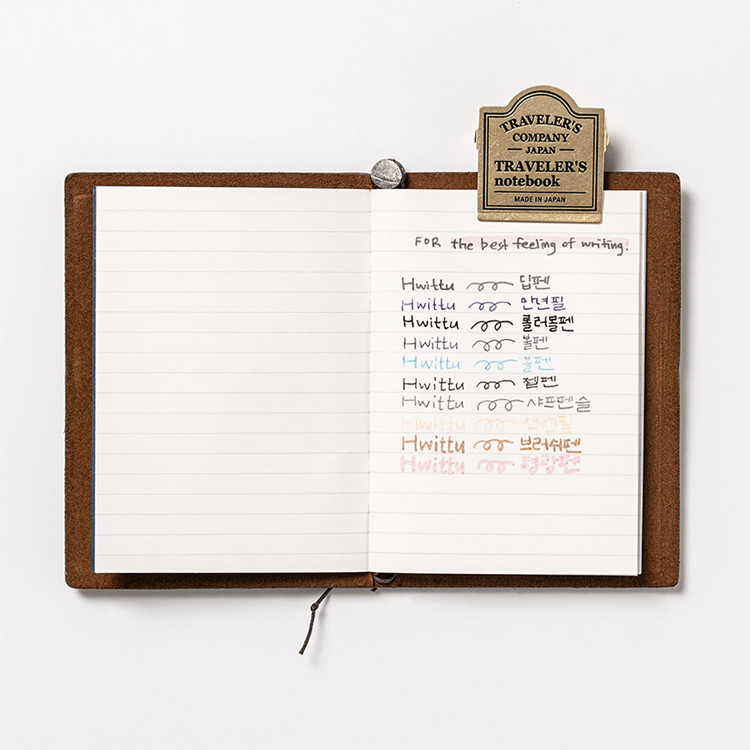 TRAVELER'S
COMPANY
JAPAN
TRAVELER'S
notebook
MADE IN JAPAN
FOR the best feeling of writing!
Hwittu 딥펜
Hwittu 만년필
Hwittu 롤러볼펜
Hwittu 볼펜
Hwittu 볼펜
Hwittu 젤펜
Hwittu 샤프펜슬
Hwittu 색연필
Hwittu 브러쉬펜
Hwittu 형광펜